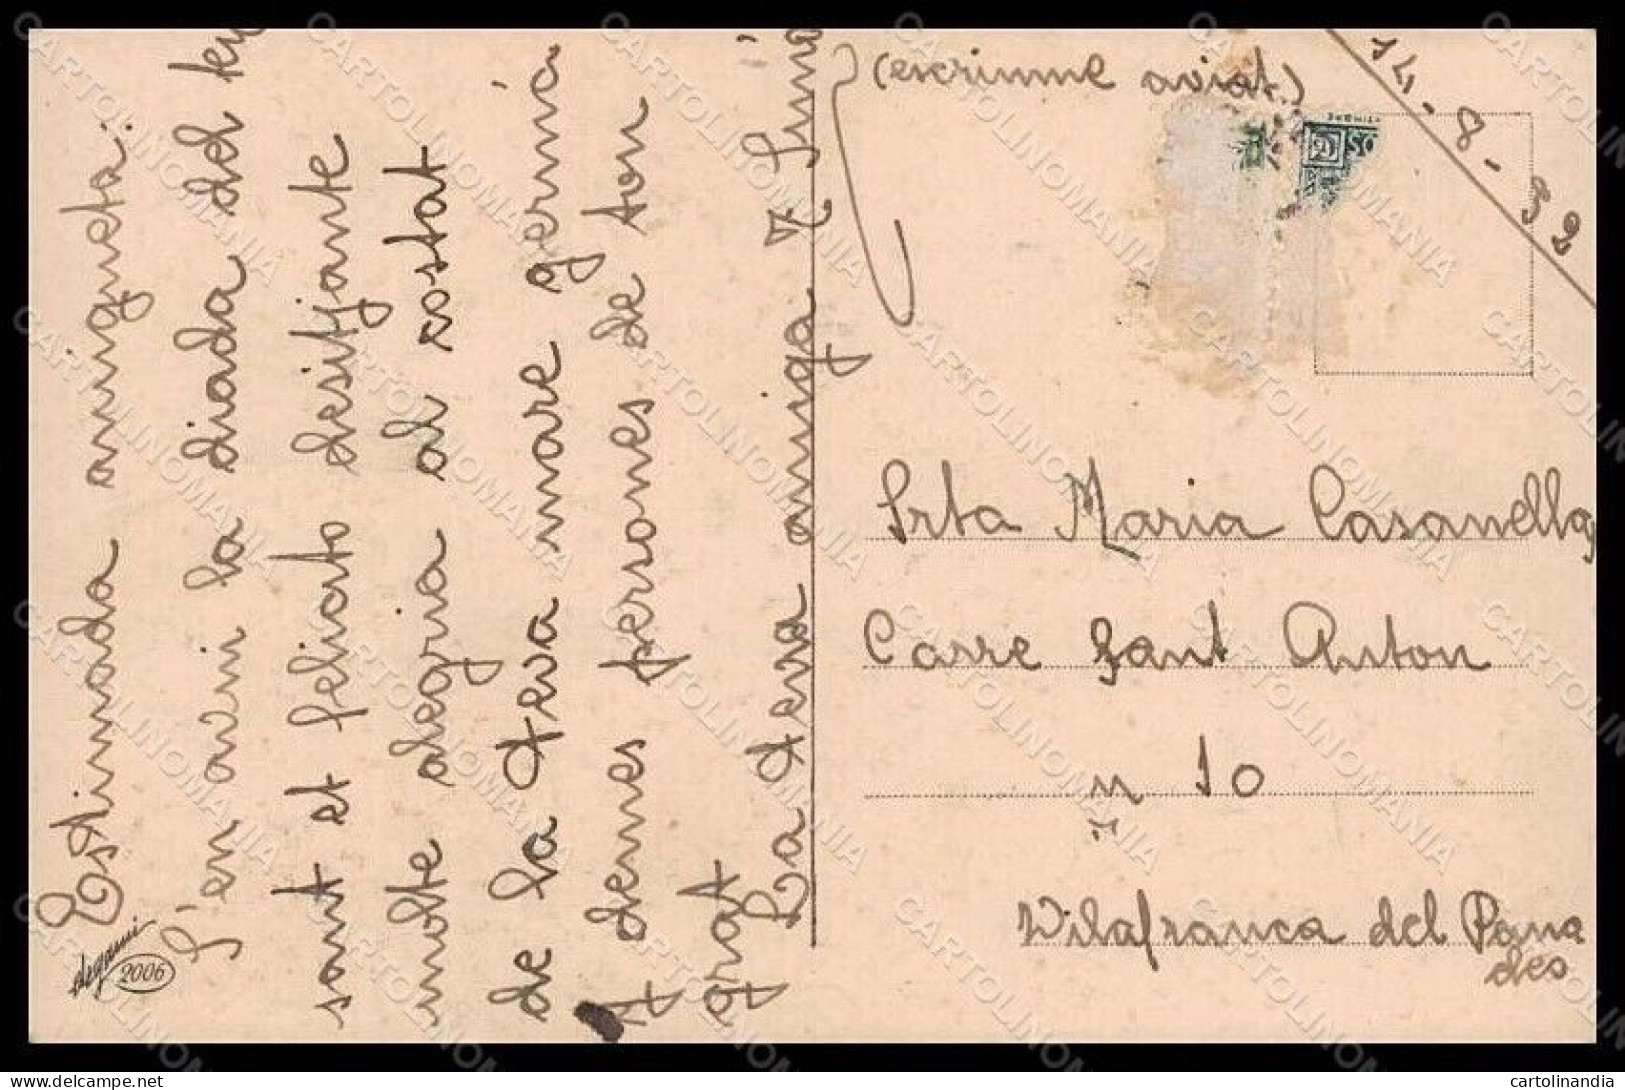 Estimada amigueta:
J'en avini la diada del teu
sant et felicito desitjante
molte alegria al costat
de la teva mare germá
y demes persones de ton
grat
La teva amiga
(escriume aviat.)
14-8-32
Srta Maria Casanellas
Carre Sant Anton
n 10
Vilafranca del Pana
des
degami
2006
CARTOLINOMANIA
cartolinandia